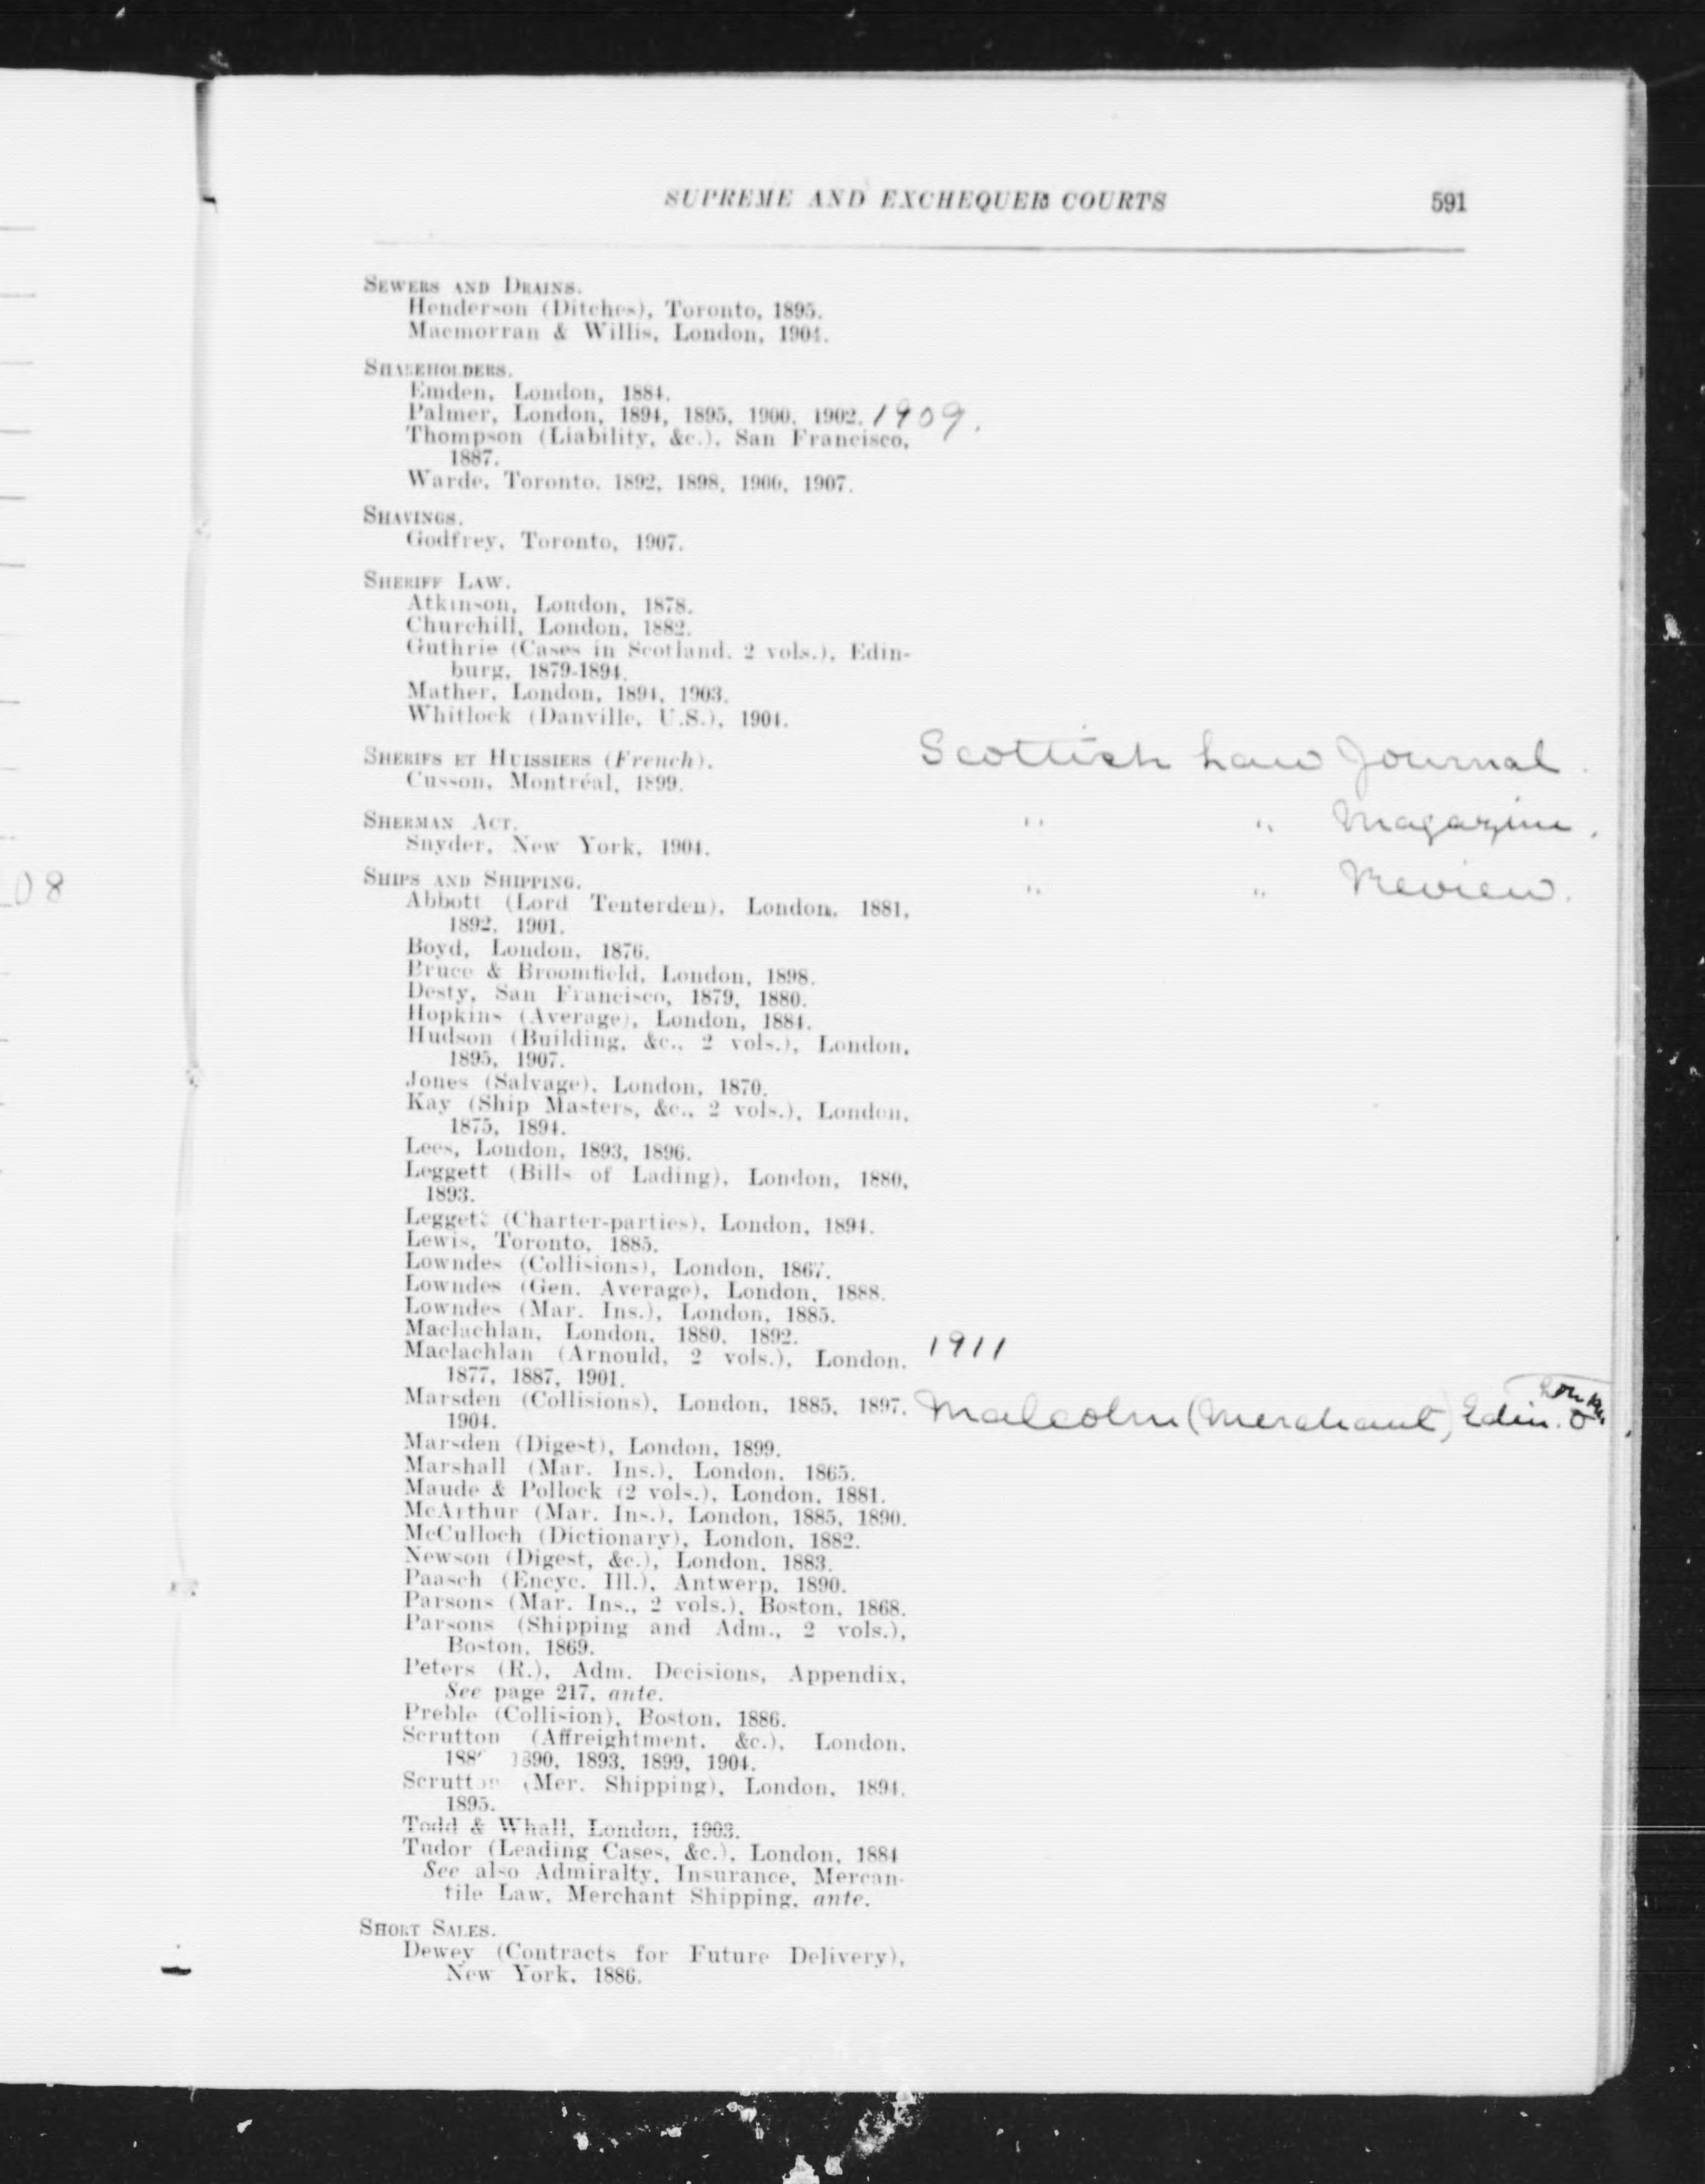 08
SUPREME AND EXCHEQUER COURTS 591
SEWERS AND DRAINS.
Henderson (Ditches), Toronto, 1895.
Macmorran & Willis, London, 1904.
SHAREHOLDERS.
Emden, London, 1884.
Palmer, London, 1894, 1895, 1900, 1902. 1909.
Thompson (Liability, &c.), San Francisco,
1887.
Warde, Toronto, 1892, 1898, 1906, 1907.
SHAVINGS.
Godfrey, Toronto, 1907.
SHERIFF LAW.
Atkinson, London, 1878.
Churchill, London, 1882.
Guthrie (Cases in Scotland, 2 vols.), Edin-
burg, 1879-1894.
Mather, London, 1894, 1903.
Whitlock (Danville, U.S.), 1904.
SHERIFS ET HUISSIERS (French).
Cusson, Montréal, 1899.
Scottish Law Journal.
SHERMAN ACT.
Snyder, New York, 1904.
" " Magazine.
SHIPS AND SHIPPING.
" " Review.
Abbott (Lord Tenterden), London, 1881,
1892, 1901.
Boyd, London, 1876.
Bruce & Broomfield, London, 1898.
Desty, San Francisco, 1879, 1880.
Hopkins (Average), London, 1884.
Hudson (Building, &c., 2 vols.), London,
1895, 1907.
Jones (Salvage), London, 1870.
Kay (Ship Masters, &c., 2 vols.), London,
1875, 1894.
Lees, London, 1893, 1896.
Leggett (Bills of Lading), London, 1880,
1893.
Leggett (Charter-parties), London, 1894.
Lewis, Toronto, 1885.
Lowndes (Collisions), London, 1867.
Lowndes (Gen. Average), London, 1888.
Lowndes (Mar. Ins.), London, 1885.
Maclachlan, London, 1880, 1892. 1911
Maclachlan (Arnould, 2 vols.), London,
1877, 1887, 1901.
Marsden (Collisions), London, 1885, 1897,
1904.
Malcolm (Merchant) Edin.
Marsden (Digest), London, 1899.
Marshall (Mar. Ins.), London, 1865.
Maude & Pollock (2 vols.), London, 1881.
McArthur (Mar. Ins.), London, 1885, 1890.
McCulloch (Dictionary), London, 1882.
Newson (Digest, &c.), London, 1883.
Paasch (Encyc. Ill.), Antwerp, 1890.
Parsons (Mar. Ins., 2 vols.), Boston, 1868.
Parsons (Shipping and Adm., 2 vols.),
Boston, 1869.
Peters (R.), Adm. Decisions, Appendix,
See page 217, ante.
Preble (Collision), Boston, 1886.
Scrutton (Affreightment, &c.), London,
1890, 1893, 1899, 1904.
Scrutton (Mer. Shipping), London, 1894,
1895.
Todd & Whall, London, 1903.
Tudor (Leading Cases, &c.), London, 1884
See also Admiralty, Insurance, Mercan-
tile Law, Merchant Shipping, ante.
SHORT SALES.
Dewey (Contracts for Future Delivery),
New York, 1886.